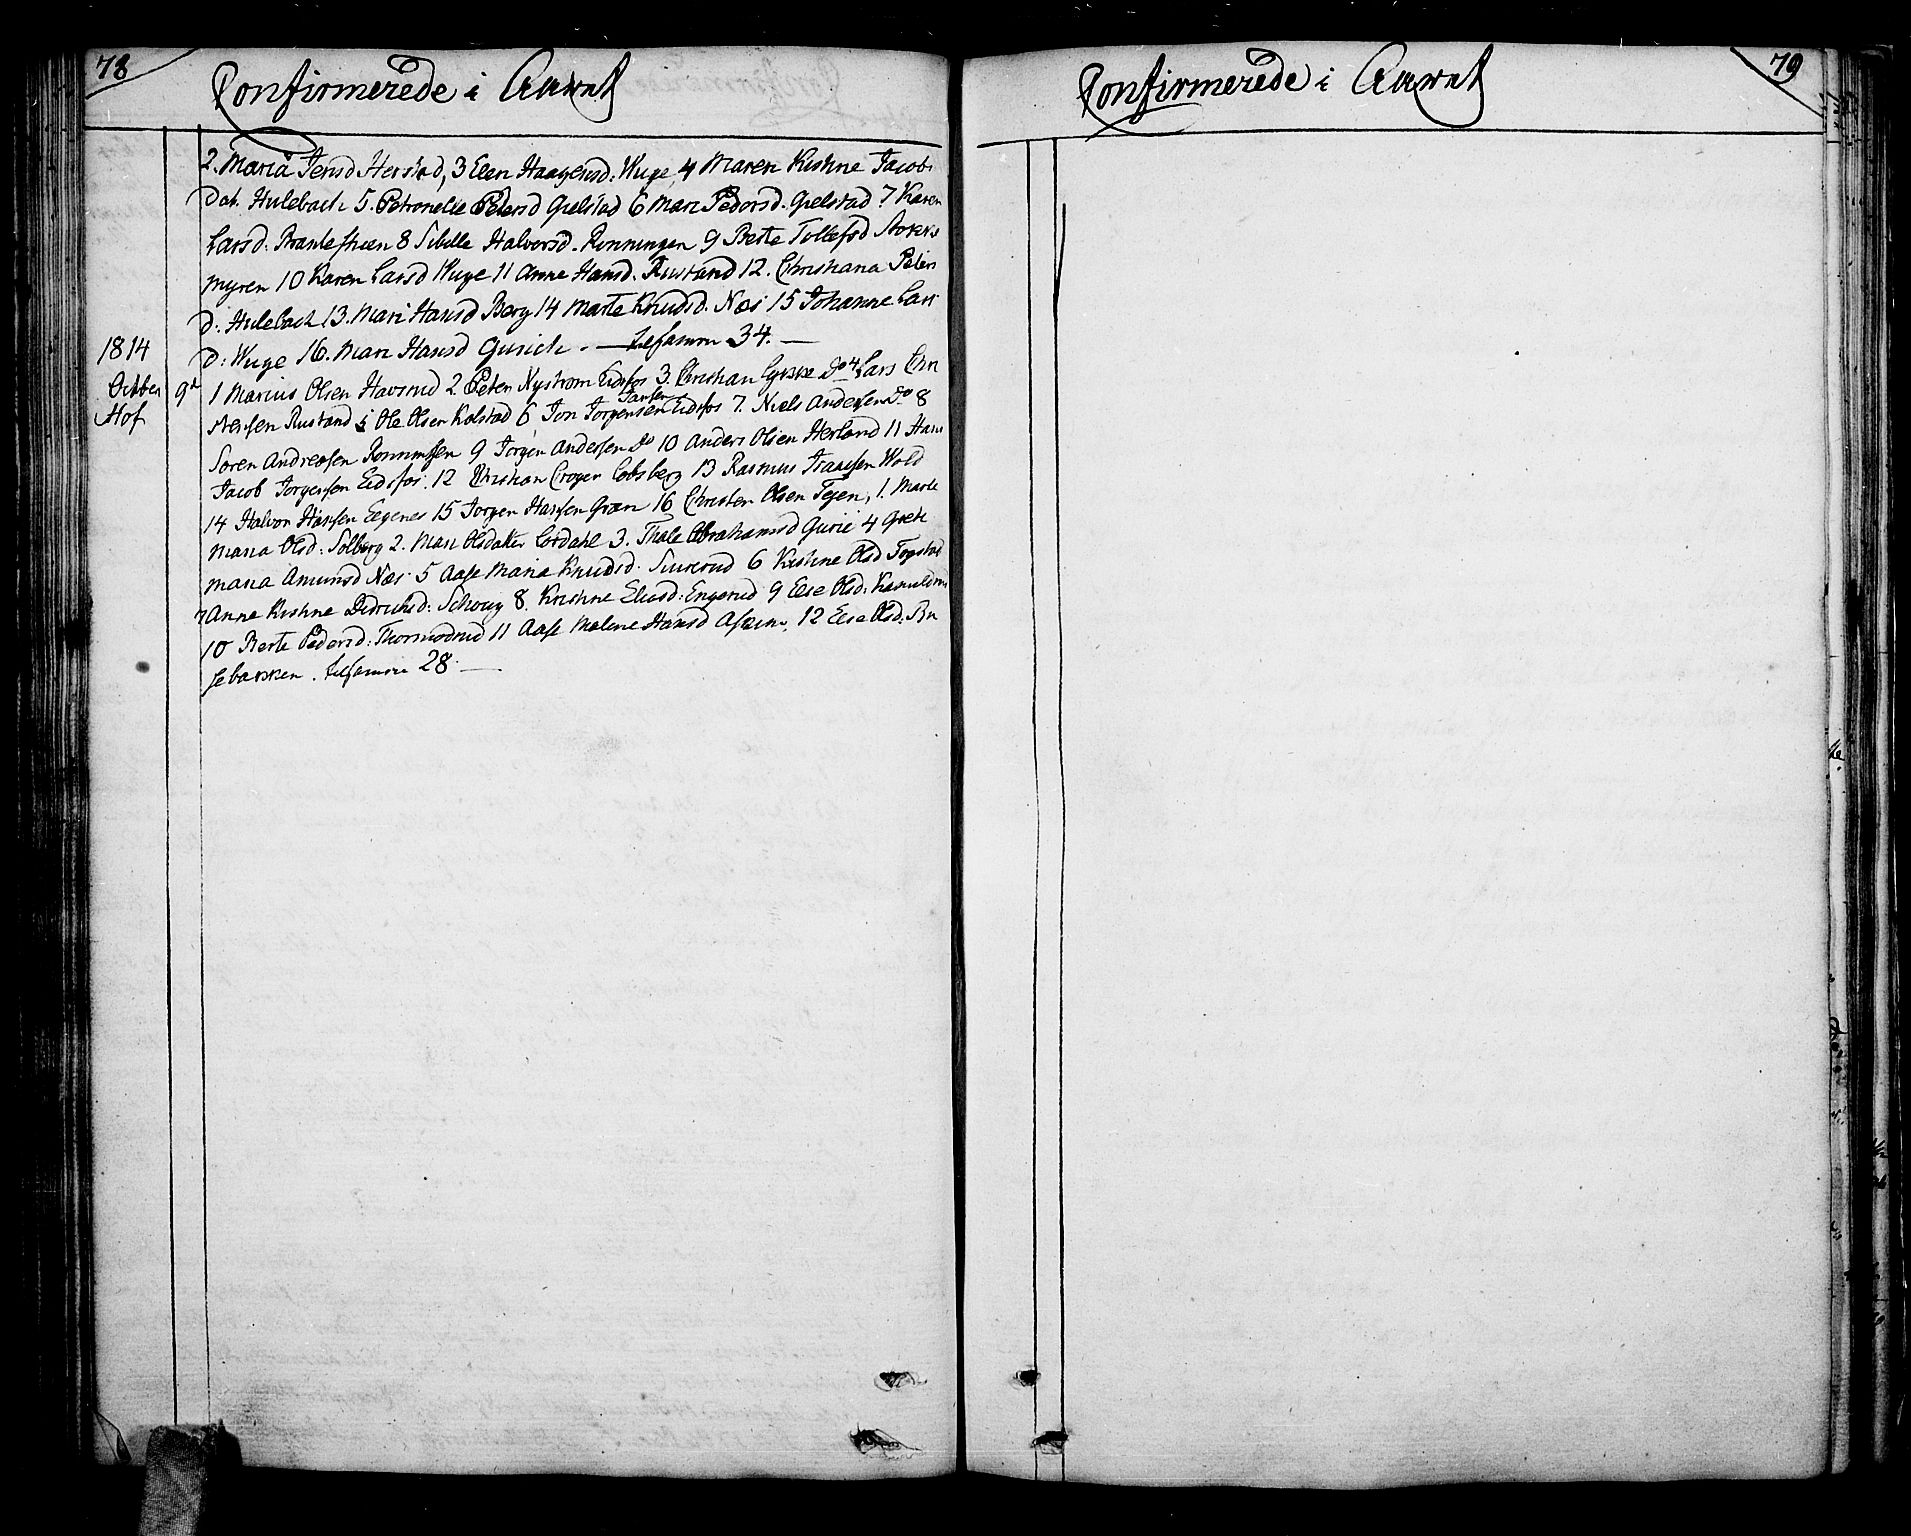 78
Confirmerede i Aaret
2. Maria Jensd Herstad, 3 Elen Haagensd: Wuge, 4 Maren Kistine Jacobs
Dat. Hulebach 5. Petronelle Petersd Gielstad 6 Mari Pedersd. Gielstad 7 Karen
Larsd. 8 Sibille Halvorsd. Rønningen 9 Berte Tollefsd
myren 10 Karen Larsd Wuge 11 Anne Hansd. Rustand 12. Christiana Peters
D: Hulebach 13. Mari Hansd Berg 14 Marte Knudsd. Næs 15 Johanne Lars
D: Wuge 16. Mari Hansd Gurich. — Tilsamen 34. —
1814
Octber 9d
Hof
1 Marius Olsen Havsrud 2. Peter Nystrøm Eidsfos 3. Christian Lykke Do 4 Lars Chri
stensen Rustand 5 Ole Olsen Kolstad 6 Jon Jørgensen Jansen Eidsfos 7. Niels Andersen Do 8
Søren Andreasen 9 Jørgen Andersen Do 10 Anders Olsen Herland 11 Hans
Jacob Jørgensen Eidsfos. 12 Christian Crøger 13 Rasmus Wold
14 Halvor Hansen Eegenes 15 Jørgen Hansen Gran 16 Christen Olsen Tejen, 1. Marte
Maria Olsd: Solberg 2. Mari Olsdatter 3. Thale Abrahamsd Gurie 4 Grete
Maria Amunsd Næs 5 Aase Maria Knudsd. 6 Kistine Olsd Togstad
7 Anne Kistine Didrichsd: Schoug 8. Kristine Eliasd: Engerud 9 Else Olsd:
10 Berte Pedersd: Thormodrud 11 Aase Malene Hansd 12 Else Olsd. Bu
sebakken. Tilsamen 28. —
79
Confirmerede i Aaret